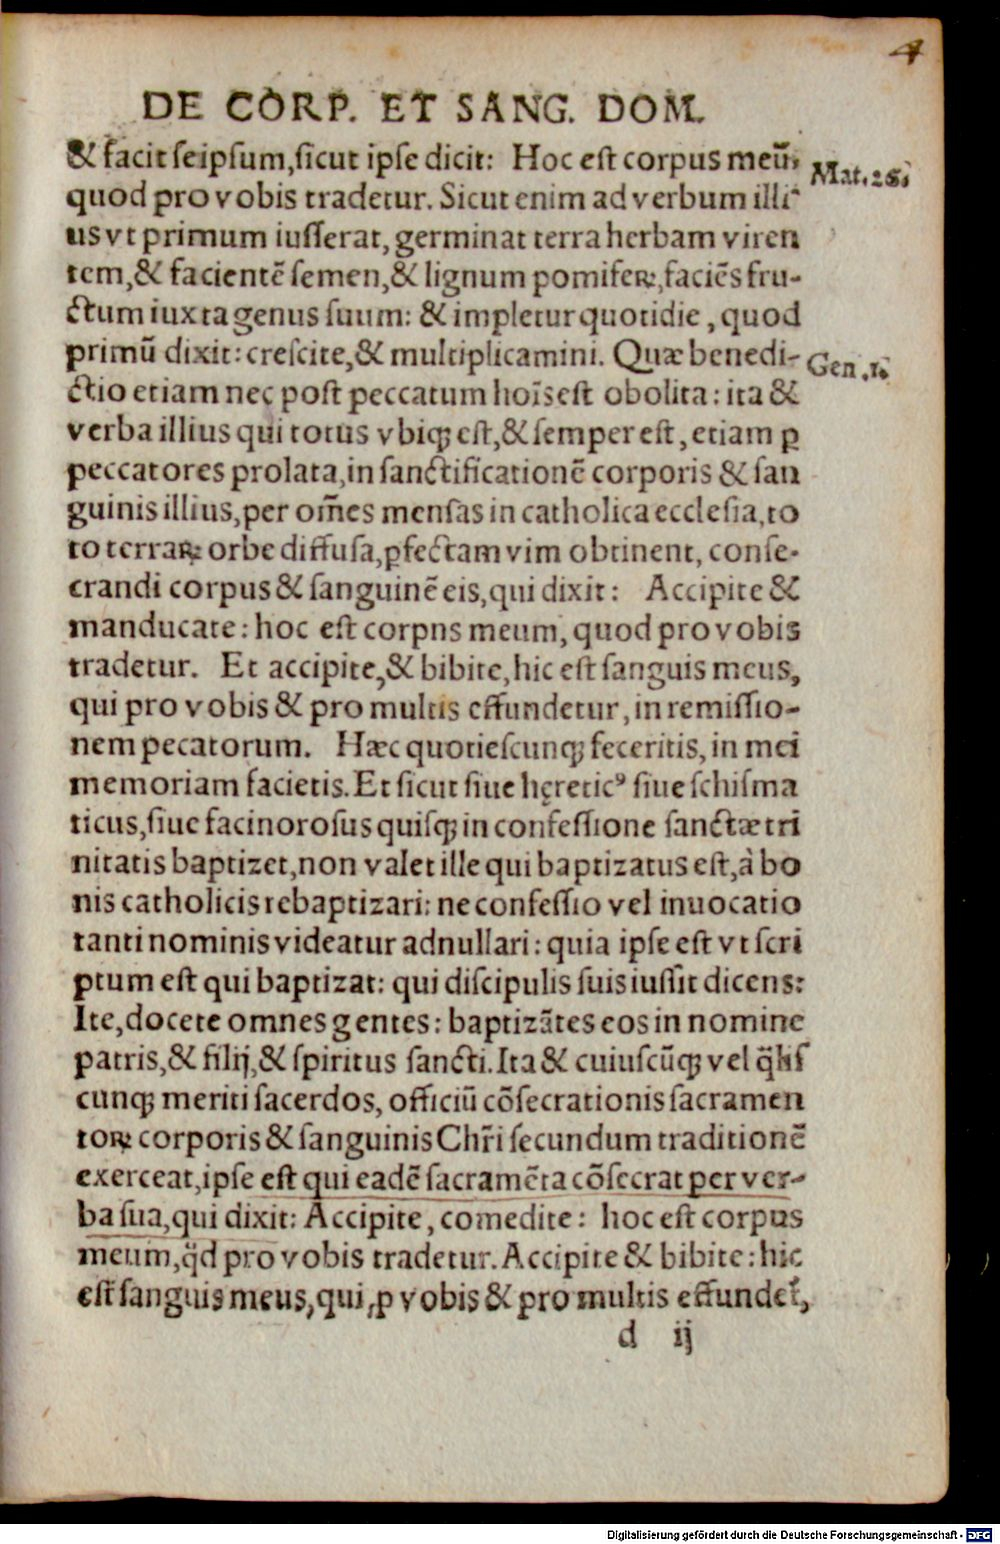 4
DE CORP. ET SANG. DOM.
& facit seipsum, sicut ipse dicit: Hoc est corpus meū,
Mat. 26.
quod pro vobis tradetur. Sicut enim ad verbum illi-
us vt primum iusserat, germinat terra herbam viren
tem, & facientē semen, & lignum pomiferꝝ, faciēs fru-
ctum iuxta genus suum: & impletur quotidie, quod
primū dixit: crescite, & multiplicamini. Quæ benedi-
Gen. 1.
ctio etiam nec post peccatum hoīs est obolita: ita &
verba illius qui totus vbiqꝫ est, & semper est, etiam ꝑ
peccatores prolata, in sanctificationē corporis & san
guinis illius, per om̄es mensas in catholica ecclesia, to
to terraꝝ orbe diffusa, ꝑfectam vim obtinent, conse-
crandi corpus & sanguinē eis, qui dixit: Accipite &
manducate: hoc est corpns meum, quod pro vobis
tradetur. Et accipite, & bibite, hic est sanguis meus,
qui pro vobis & pro multis effundetur, in remissio-
nem pecatorum. Hæc quotiescunqꝫ feceritis, in mei
memoriam facietis. Et sicut siue hęreticꝰ siue schisma
ticus, siue facinorosus quisqꝫ in confessione sanctæ tri
nitatis baptizet, non valet ille qui baptizatus est, à bo
nis catholicis rebaptizari: ne confessio vel inuocatio
tanti nominis videatur adnullari: quia ipse est vt scri
ptum est qui baptizat: qui discipulis suis iussit dicens:
Ite, docete omnes gentes: baptizātes eos in nomine
patris, & filij, & spiritus sancti. Ita & cuiuscūqꝫ vel q̄lis
cunqꝫ meriti sacerdos, officiū cōsecrationis sacramen
toꝝ corporis & sanguinis Chr̄i secundum traditionē
exerceat, ipse est qui eadē sacramēta cōsecrat per ver-
ba sua, qui dixit: Accipite, comedite: hoc est corpus
meum, q̄d pro vobis tradetur. Accipite & bibite: hic
est sanguis meus, qui ꝓ vobis & pro multis effundet᷑,
d ij
Digitalisierung gefördert durch die Deutsche Forschungsgemeinschaft - DFG